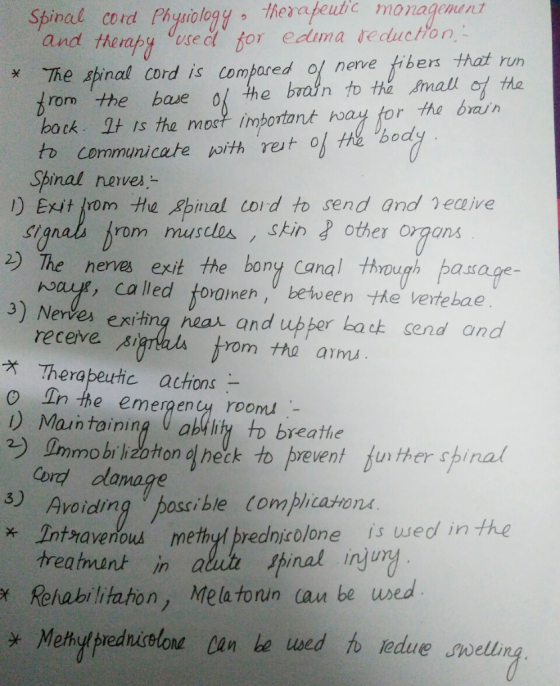 Spinal cord Physiology, therapeutic management
and therapy used for edema reduction:-
* The spinal cord is composed of nerve fibers that run
from the base of the brain to the small of the
back. It is the most important way for the brain
to communicate with rest of the body.
Spinal nerves:-
1) Exit from the spinal cord to send and receive
signals from muscles, skin & other organs.
2) The nerves exit the bony canal through passage-
ways, called foramen, between the vertebae.
3) Nerves exiting near and upper back send and
receive signals from the arms.
* Therapeutic actions :-
O In the emergency rooms :-
1) Maintaining ability to breathe
2) Immobilization of neck to prevent further spinal
cord damage
3) Avoiding possible complications.
* Intravenous methylprednisolone is used in the
treatment in acute spinal injury.
* Rehabilitation, Melatonin can be used.
* Methylprednisolone can be used to reduce swelling.